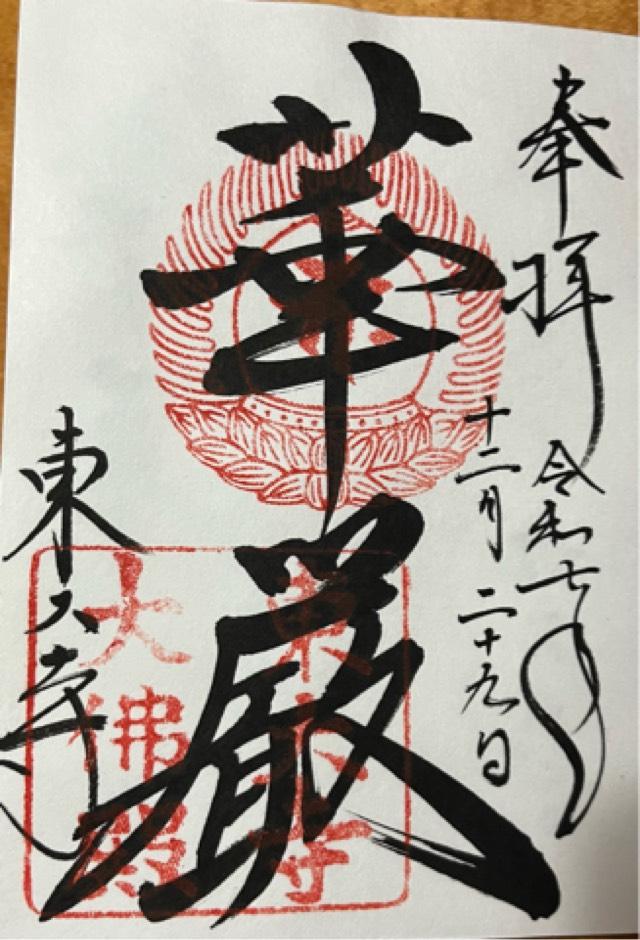 奉拝
令和七年
十二月二十九日
華厳
東大寺
東大寺
大佛殿